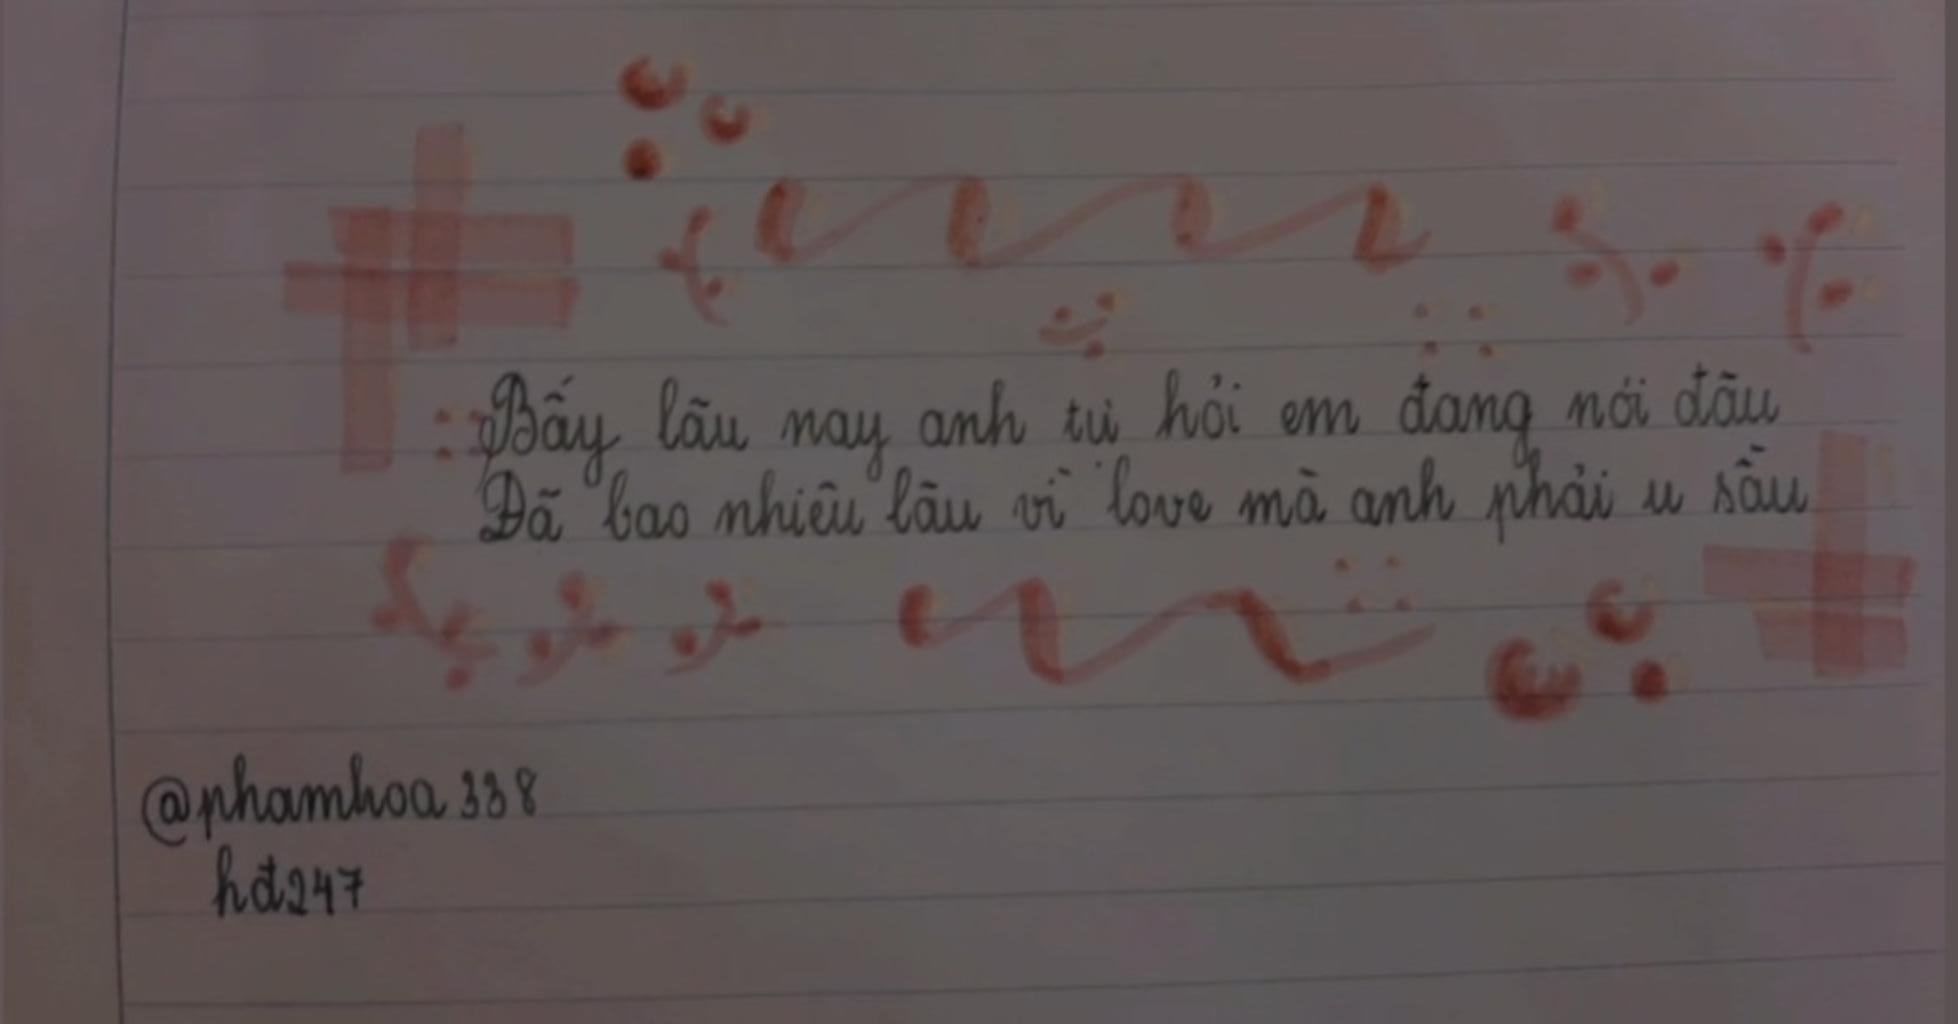 Bấy lâu nay anh tự hỏi em đang nơi đâu
Đã bao nhiêu lâu vì love mà anh phải u sầu
@phamhoa338
hđ247